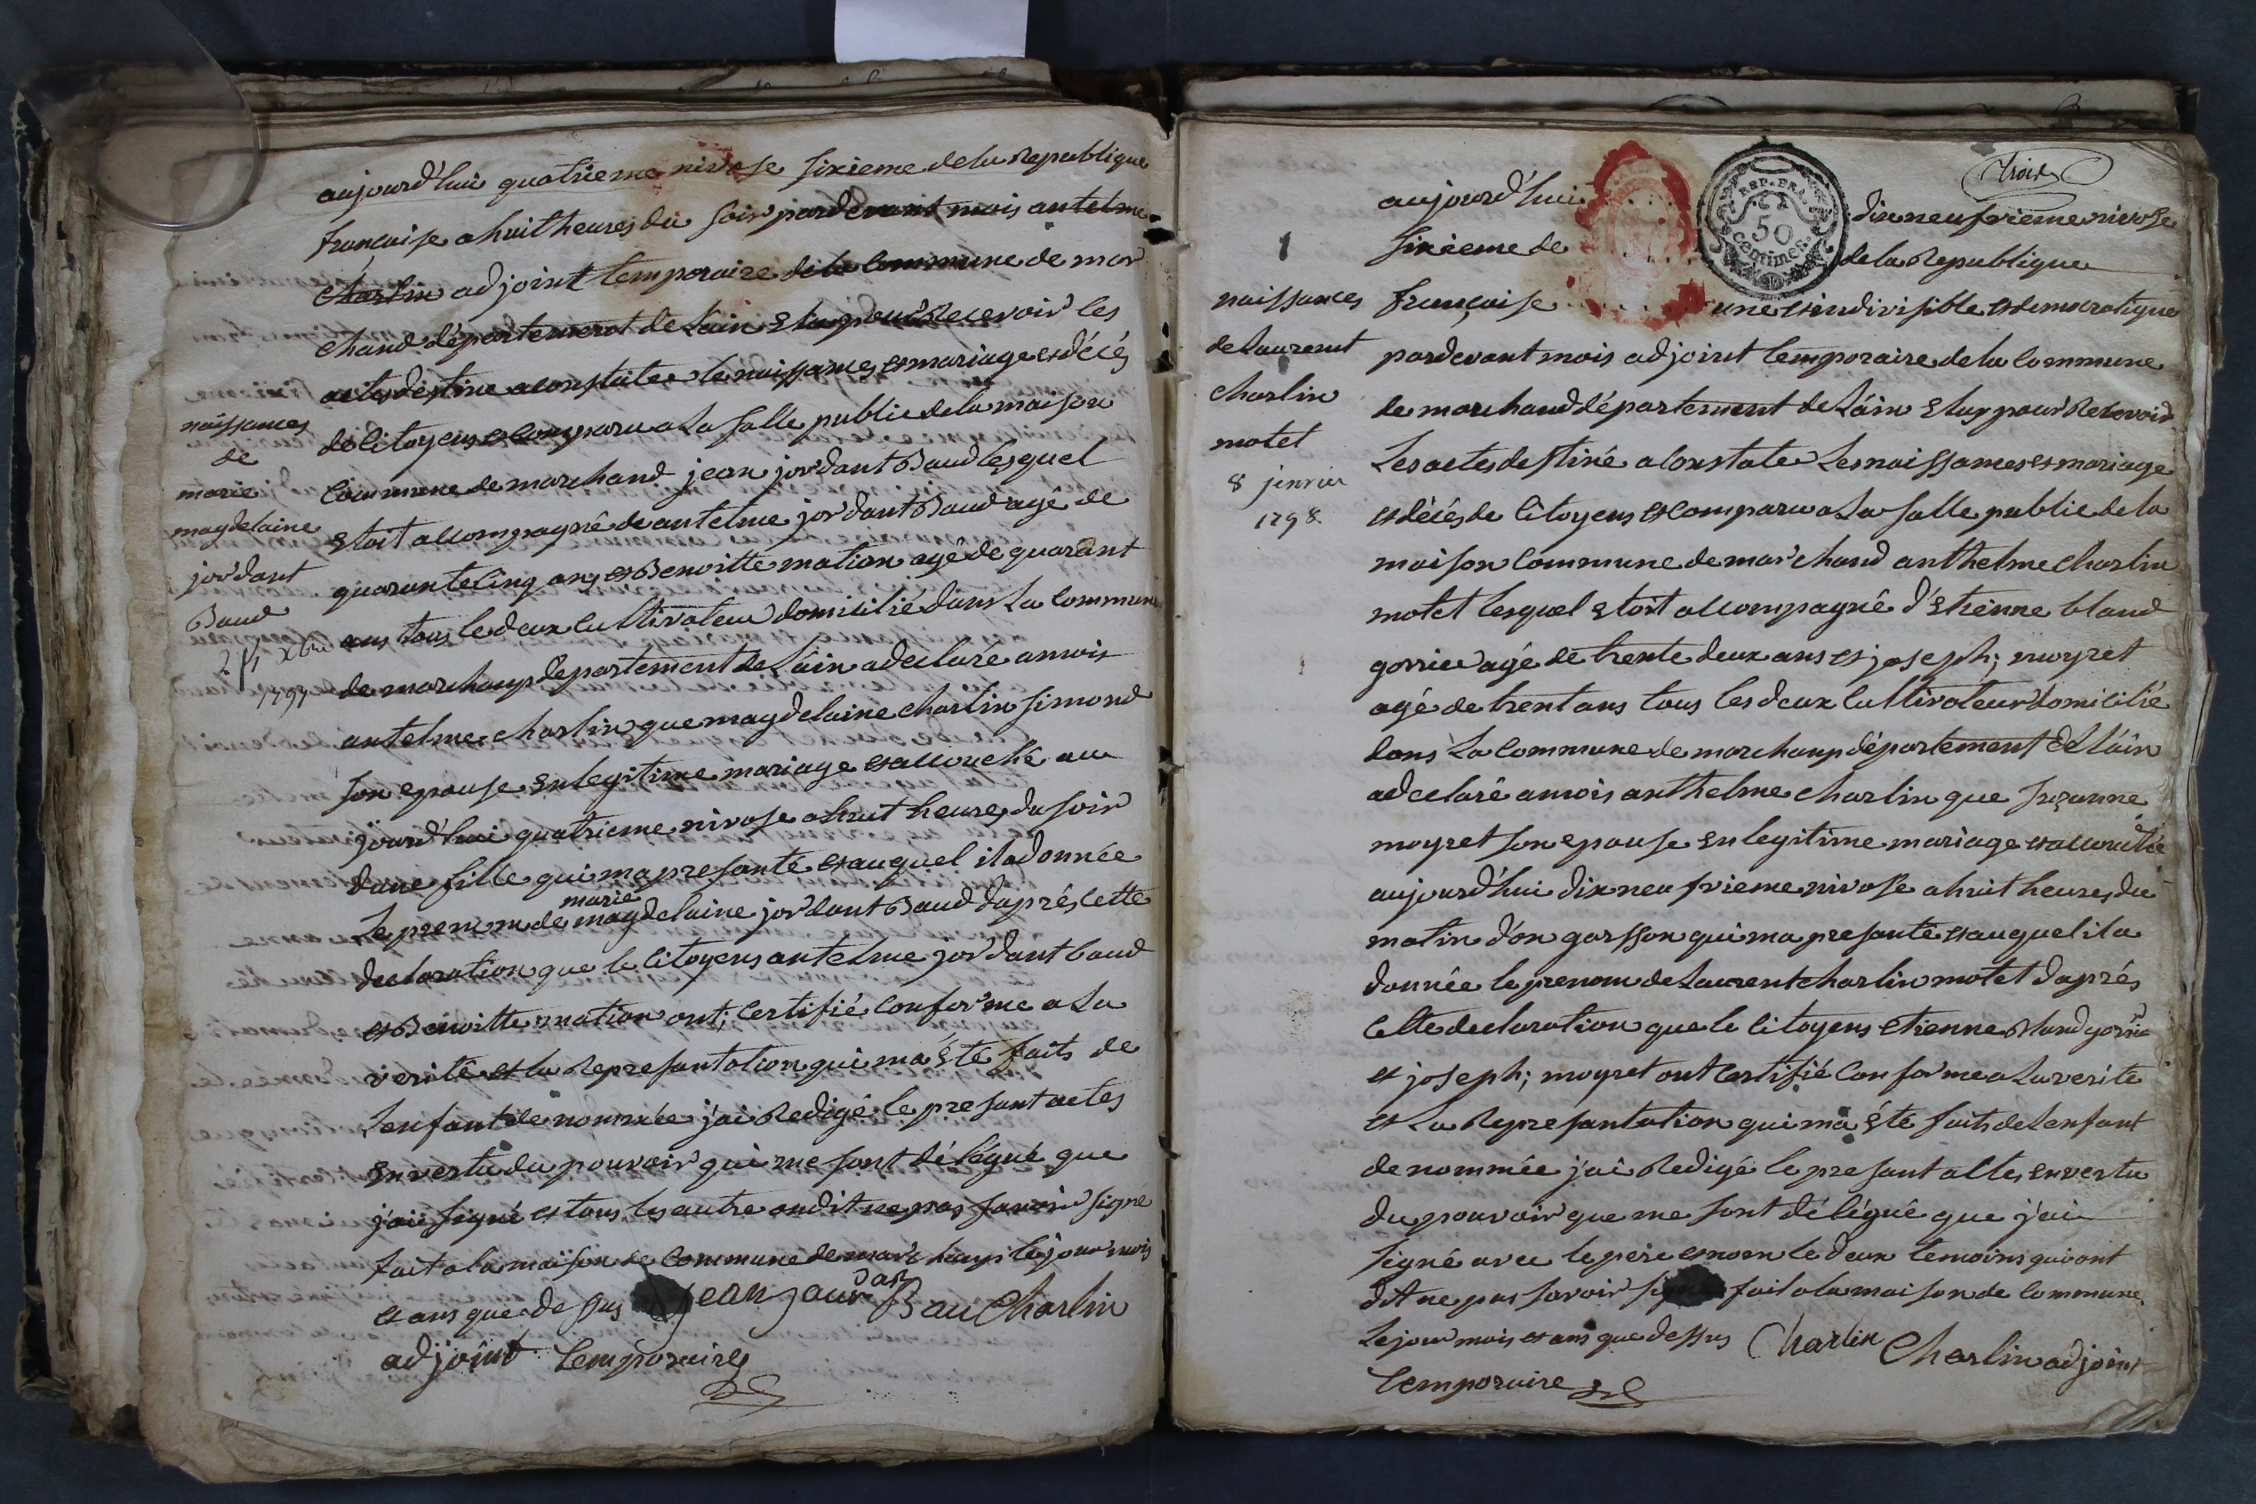 aujourd'hui quatrieme nivose sixieme dela Republique
francaise a huit heures du soir pardevant mois antelme
Charlin adjoint temporaire de la commune de mar
chand département de Lain elu pour Recevoir les
actes destine a constater le naissances et mariage et décés
de Citoyens et comparu a La salle public dela maison
Commune de marchand jean jordant Baud lesquel
etoit accompagné de antelme jordant Baud agé de
quarante cinq ans et Benoitte mation agé de quarant
ans tous le deux cultivateur domicilié dans La commune
de marchamp departement de Láin a declaré a mois
antelme charlin que magdelaine charlin simond
son epouse en legitime mariage et accouché au
jourd'hui quatrieme nivose a huit heures du soir
dune fille qui ma presanté et auquel il a donnée
marie
Le prenom de magdelaine jordant Baud daprés cette
declaration que le citoyens antelme jordant baud
et Benoitte mation ont; certifié conforme a La
verité et la Represantation qui má été faits de
Lenfant de nommée j'ai Redigé le presant actes
en vertu du pouvoir qui me sont délégué que
j'ai signé et tous les autre ondit ne pas savoir signé
fait a la maison de commune de marchamp le jour mois
et ans que de sus jean jourdan Bau Charlin
adjoint temporaire
naissances
de
marie
magdelaine
jordant
Baud
24 Xbre
1797
trois
REP. FRA.
50
centimes.
aujourd'hui dix neufvieme nivose
sixieme de de la Republique
françoise une et indivisible et democratique
pardevant mois adjoint temporaire de la commune
de marchand département de Láin elu pour Recevoir
Les actes destiné a constater Les naissances et mariage
et décés de Citoyens et comparu a La salle public de la
maison commune de marchand anthelme Charlin
motet lesquel etoit accompagné d'etienne bland
gorrier agé de trente deux ans et joseph; moyret
agé de trent ans tous les deux cultivateur domicilié
dans La commune de marchamp département de Láin
a declaré a mois anthelme charlin que suzanne
moyret son epouse en legitime mariage et accouché
aujourd'hui dix neufvieme nivose a huit heures du
matin d'on garsson qui ma presanté et auquel il a
donnée le prenom de Laurent charlin motet daprés
Cette declaration que le citoyens etienne Bland gorrier
et joseph; moyret ont certifié conforme a La verite
et La Represantation qui má été faits de Lenfant
de nommée j'ai Redigé le presant actes en vertu
du pouvoir que me sont délégué que j'ai
signé avec le pere et non le deux temoins qui ont
dit ne pas savoir fait a la maison de commune
Le jour mois et ans que dessus Charlin Charlin adjoint
temporaire
1
naissances
de Laurent
charlin
motet
8 jenvier
1798